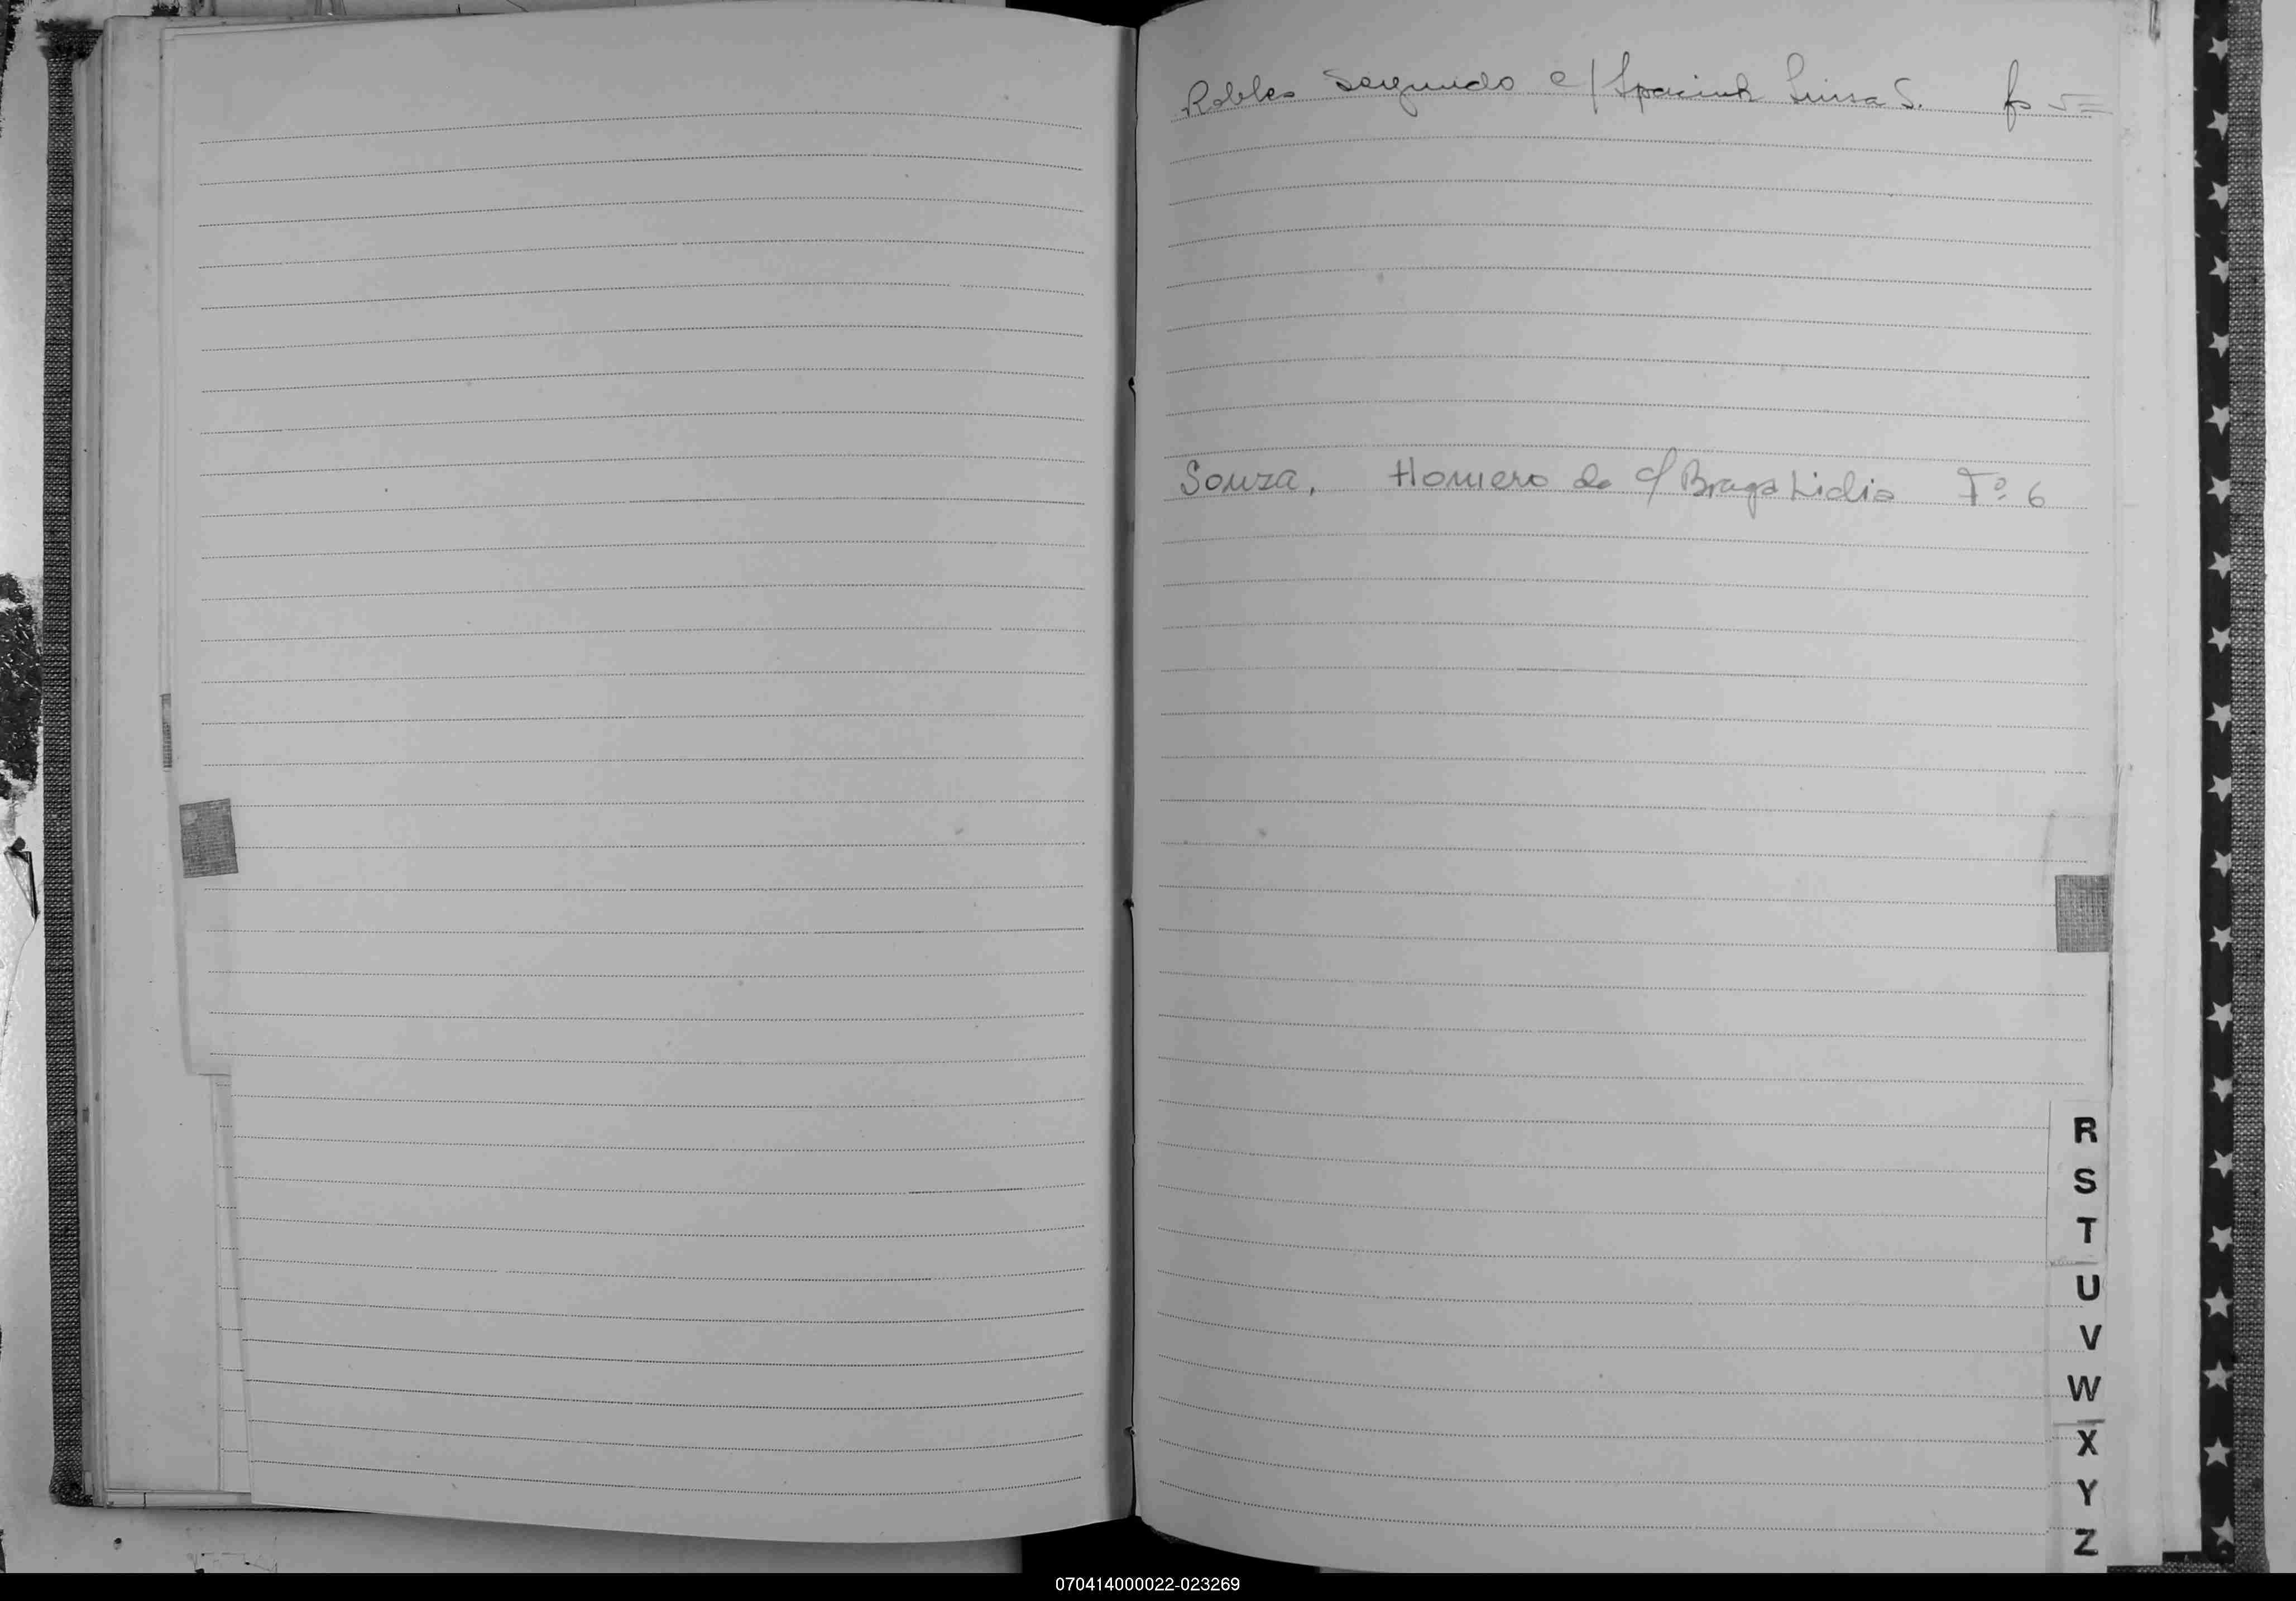 Robles Segundo c/ Luisa S. fs 5=
Souza, Homero de c/ Braga Lidia Fº 6
R
S
T
U
V
W
X
Y
Z
070414000022-023269